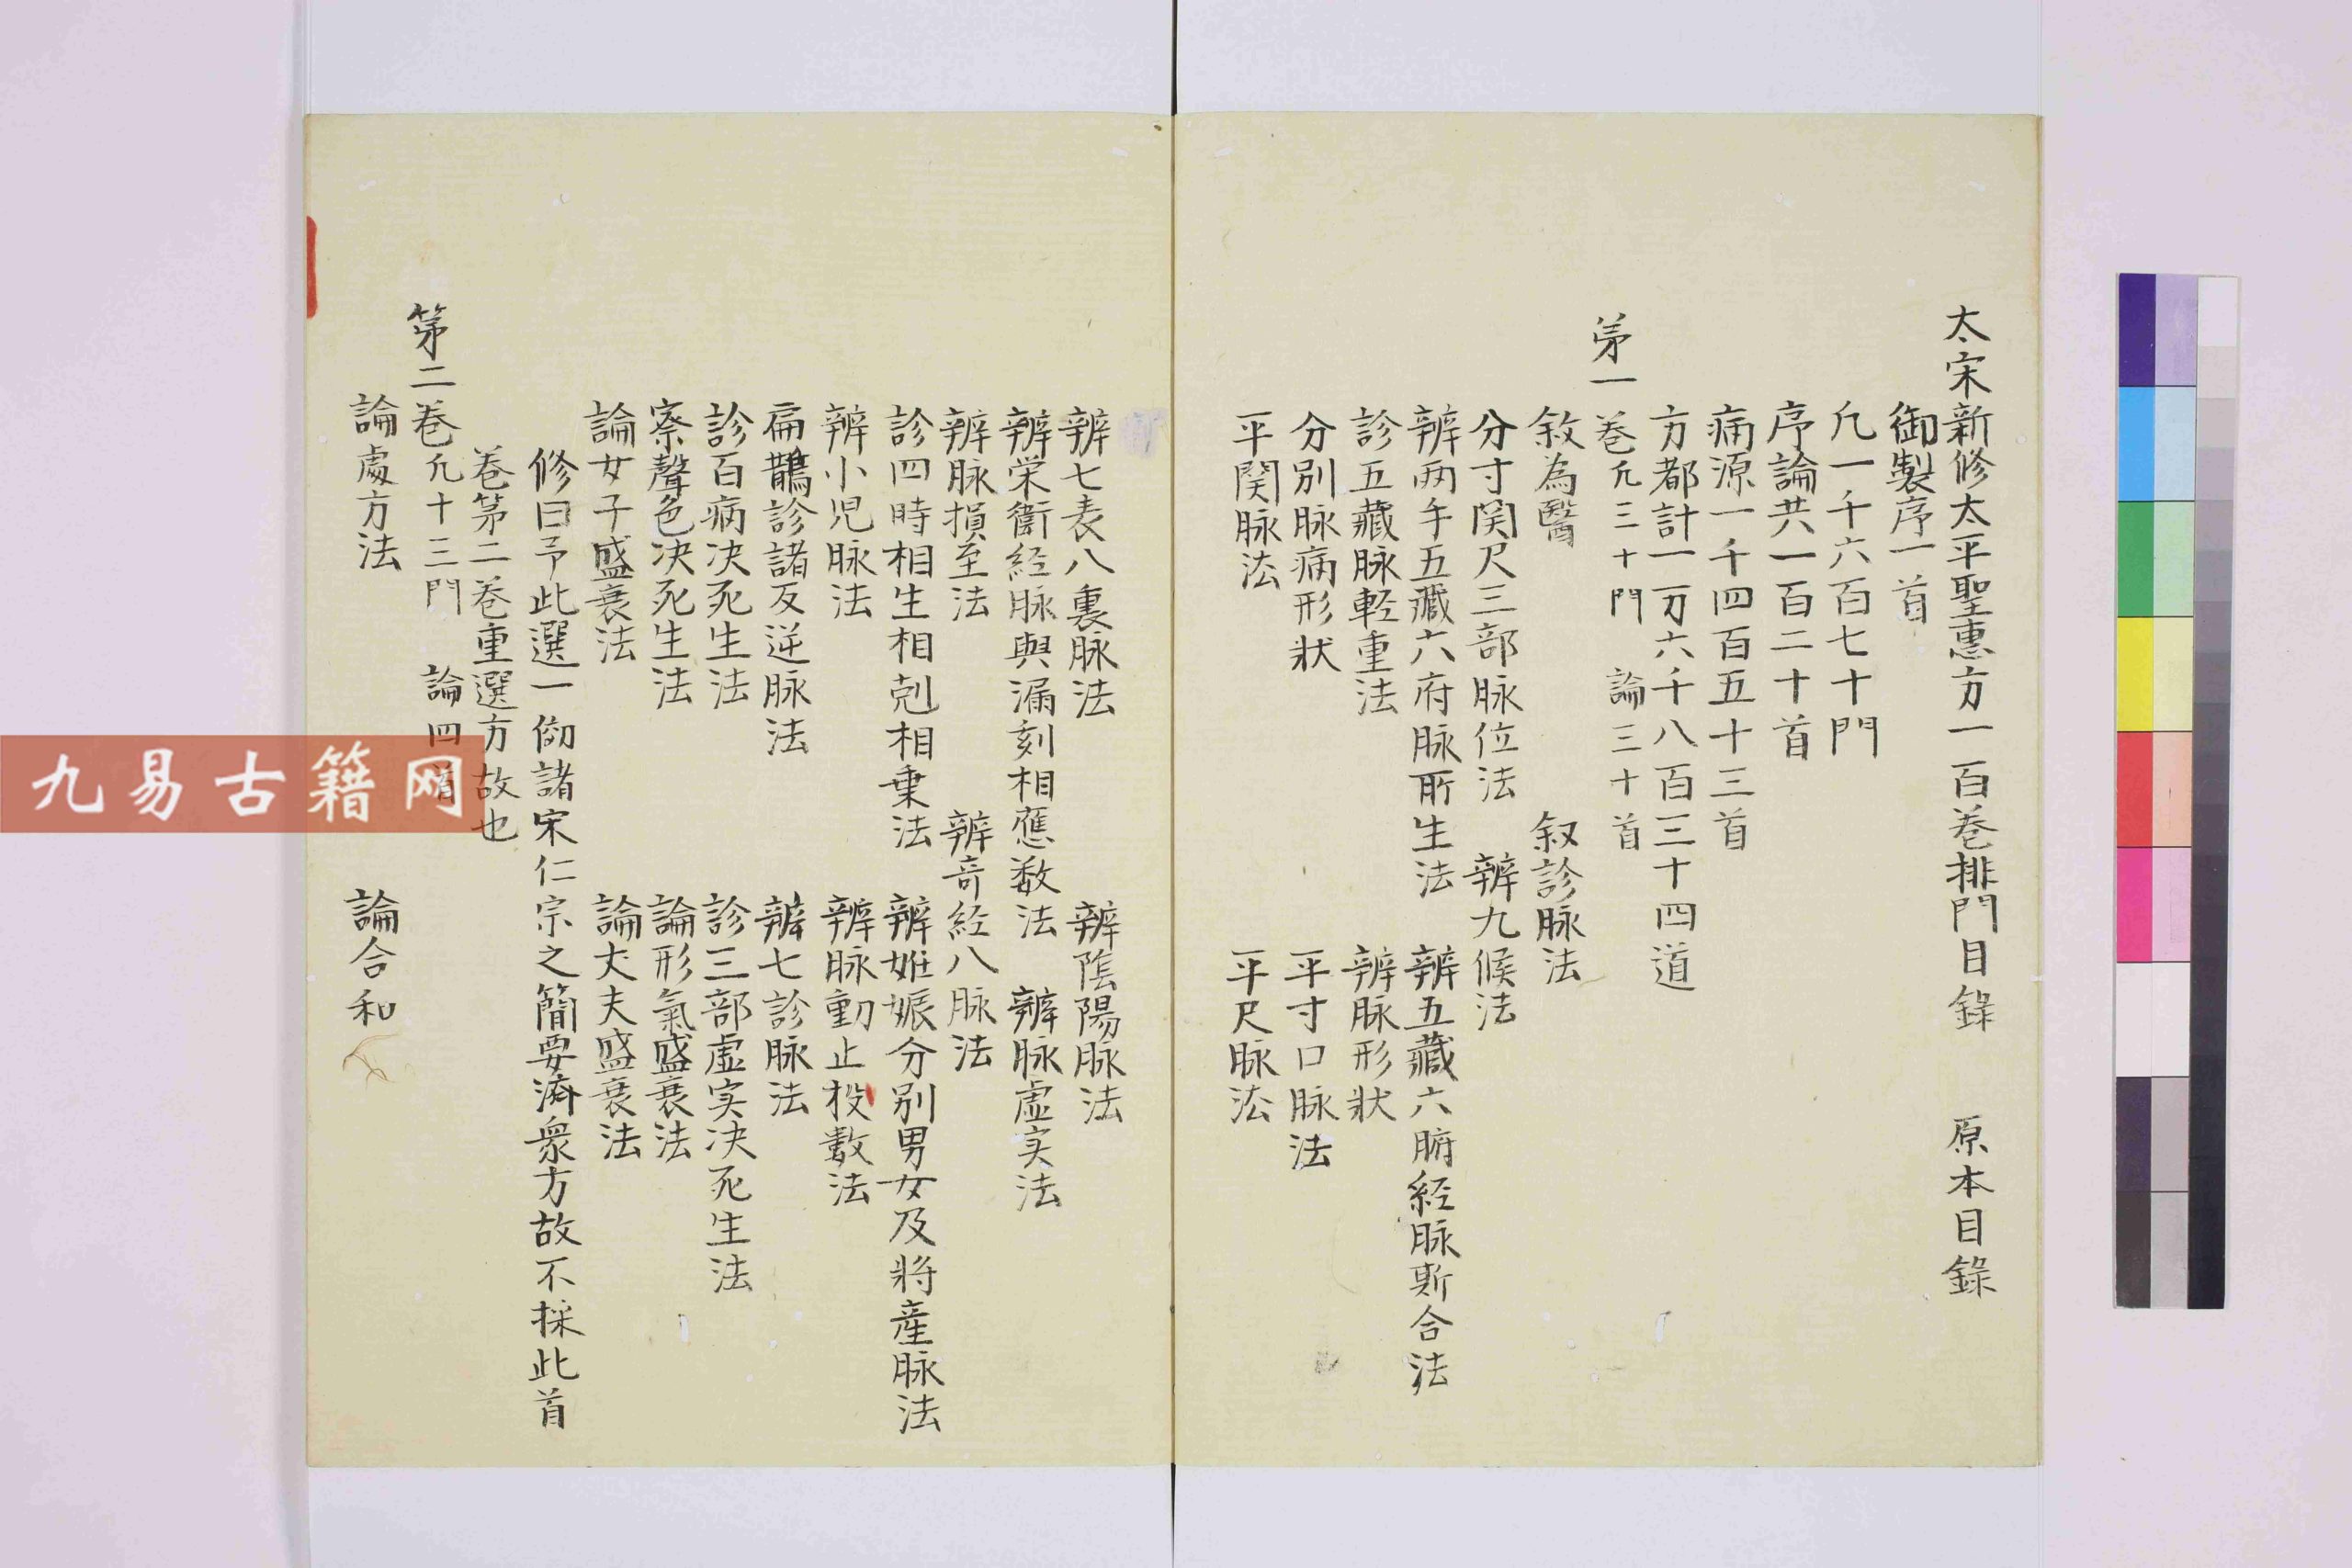 太宋新修太平聖惠方一百卷排門目錄　原本目錄
御製序一首
凢一千六百七十門
序論共一百二十首
病源一千四百五十三首
方都計一万六千八百三十四道
苐一卷凢三十門　論三十首
敘為醫　叙診脉法
分寸関尺三部脉位法　辨九候法
辨两手五藏六府脉所生法　辨五藏六腑経脉斯合法
診五藏脉軽重法　辨脉形状
分別脉病形狀　平寸口脉法
平関脉法　平尺脉法
辨七表八裏脉法　辨陰陽脉法
辨栄衛経脉與漏刻相應数法　辨脉虚実法
辨脉損至法　辨奇経八脉法
診四時相生相剋相乗法　辨妊娠分別男女及將産脉法
辨小児脉法　辨脉動止投數法
扁鵲診諸反逆脉法　辨七診脉法
診百病决死生法　診三部虚実决死生法
察聲色决死生法　論形氣盛衰法
論女子盛衰法　論丈夫盛衰法
修曰予此選一倣諸宋仁宗之簡要濟衆方故不採此首
卷第二卷重選方故也
第二卷凢十三門　論四首
論處方法　論合和
九易古籍网